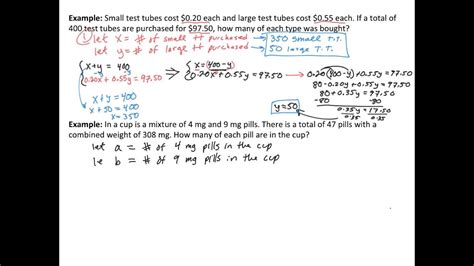 Example: Small test tubes cost $0.20 each and large test tubes cost $0.55 each. If a total of
400 test tubes are purchased for $97.50, how many of each type was bought?
① let x = # of small tt purchased 350 small T.T.
let y = # of large tt purchased 50 large T.T.
{ x+y = 400 ⇒ { x = (400-y) → 0.20(400-y)+0.55y = 97.50
0.20x + 0.55y = 97.50 0.20x + 0.55y = 97.50 80 - 0.20y + 0.55y = 97.50
x + y = 400 80 + 0.35y = 97.50
x + 50 = 400 y = 50 -80 -80
x = 350 0.35y = 17.50
0.35 0.35
Example: In a cup is a mixture of 4 mg and 9 mg pills. There is a total of 47 pills with a
combined weight of 308 mg. How many of each pill are in the cup?
let a = # of 4 mg pills in the cup
let b = # of 9 mg pills in the cup